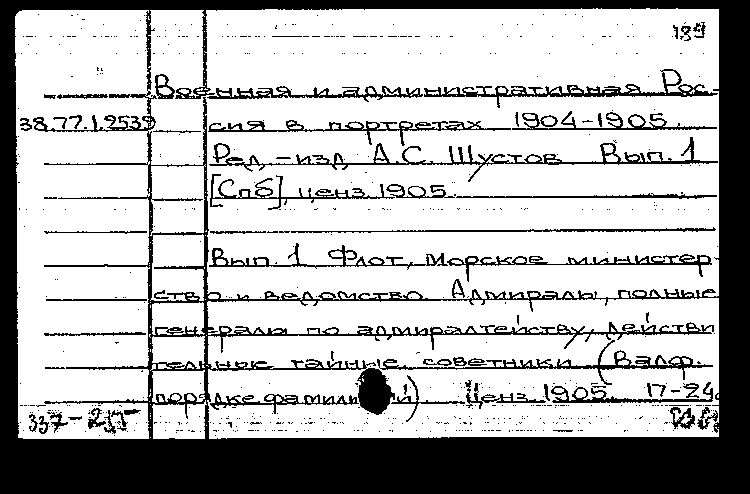 189
Военная и административная Рос-
38.77.1.2539 сия в портретах 1904-1905.
Ред.-изд. А.С. Шустов Вып. 1
[Спб], ценз. 1905.
Вып. 1 Флот, морское министер-
ство и ведомство. Адмиралы, полные
генералы по адмиралтейству, действи
тельные тайные советники (В алф.
порядке фамилий) Ценз. 1905. 17-24
337-